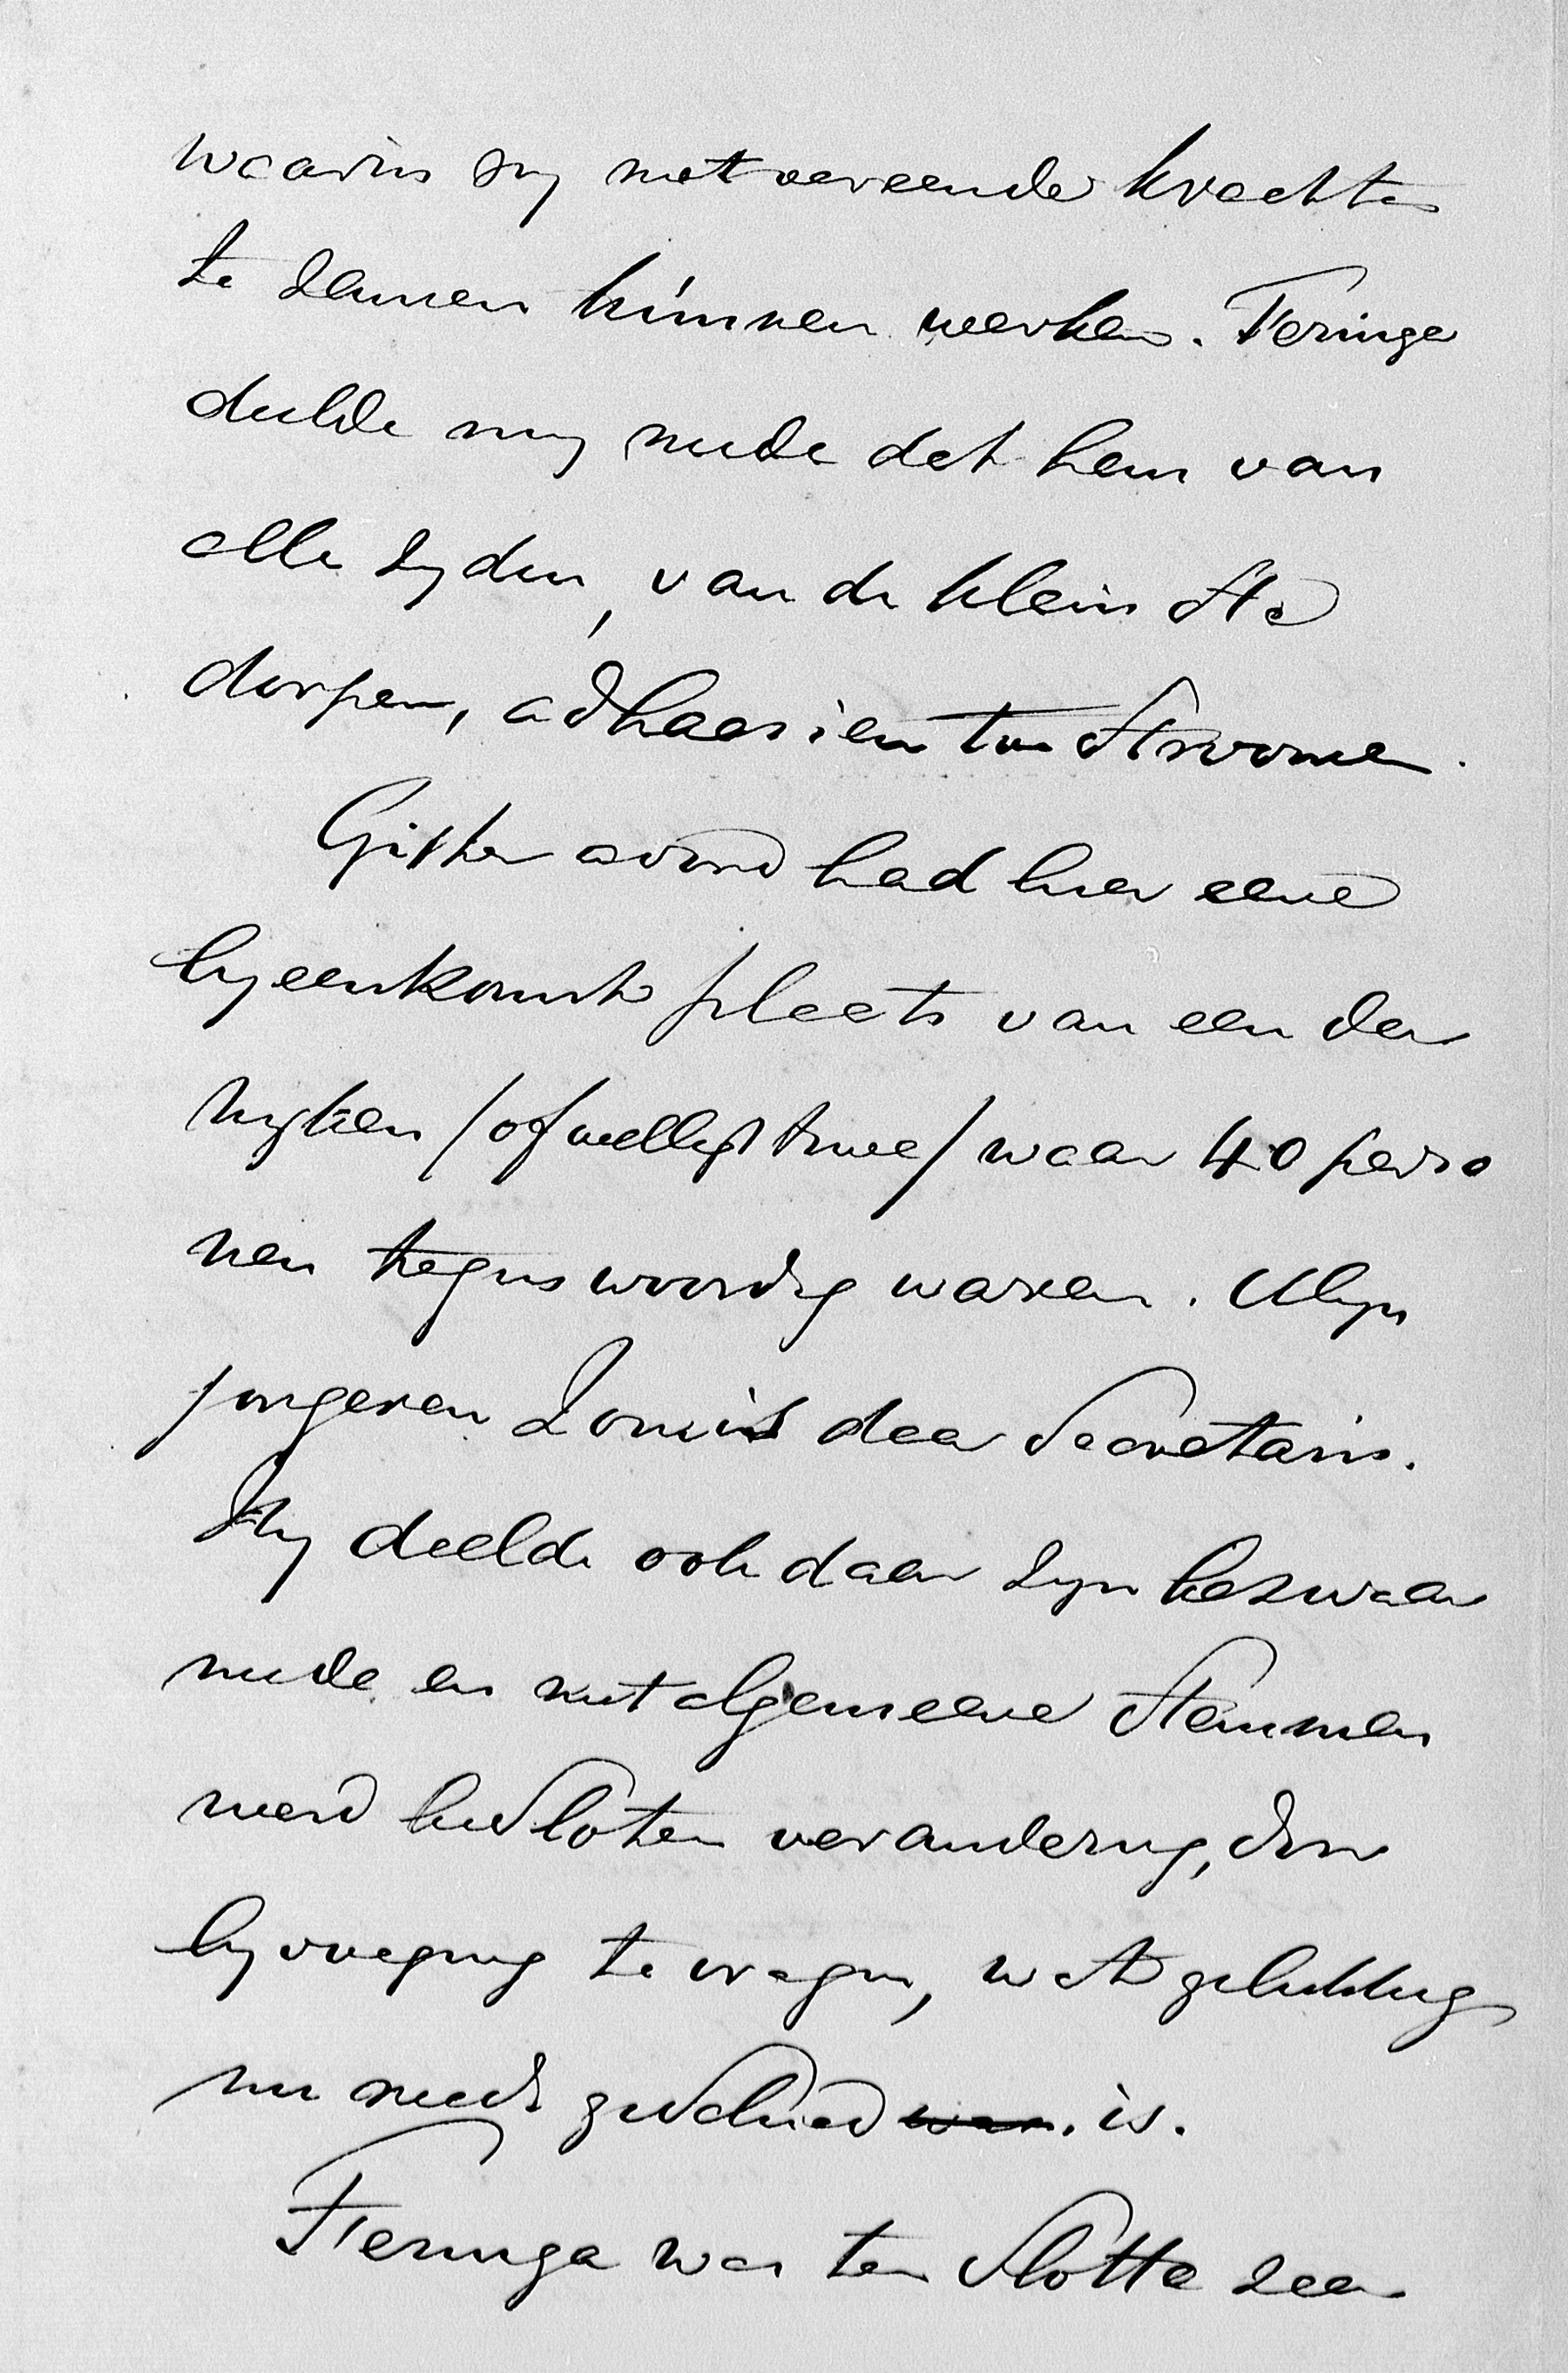 waarin zy met vereende krachten
te zamen kunnen werken. Feringa
deelde my mede dat hem van
alle zyden, van de klein ste
dorpen, adhaesien toe stroomen.
Gister avond had hier eene
byeenkomst plaats van een der
wyken /of welligt twee/ waar 40 perso
nen tegenswoordig waren. Myn
jongeren Zoon is daar Secretaris.
Hy deelde ook daar zyn bezwaar
mede en met algemeene stemmen
werd besloten verandering, door
byvoeging te vragen, wat gelukkig
nu reeds geschied is.
Feringa was ten slotte zeer